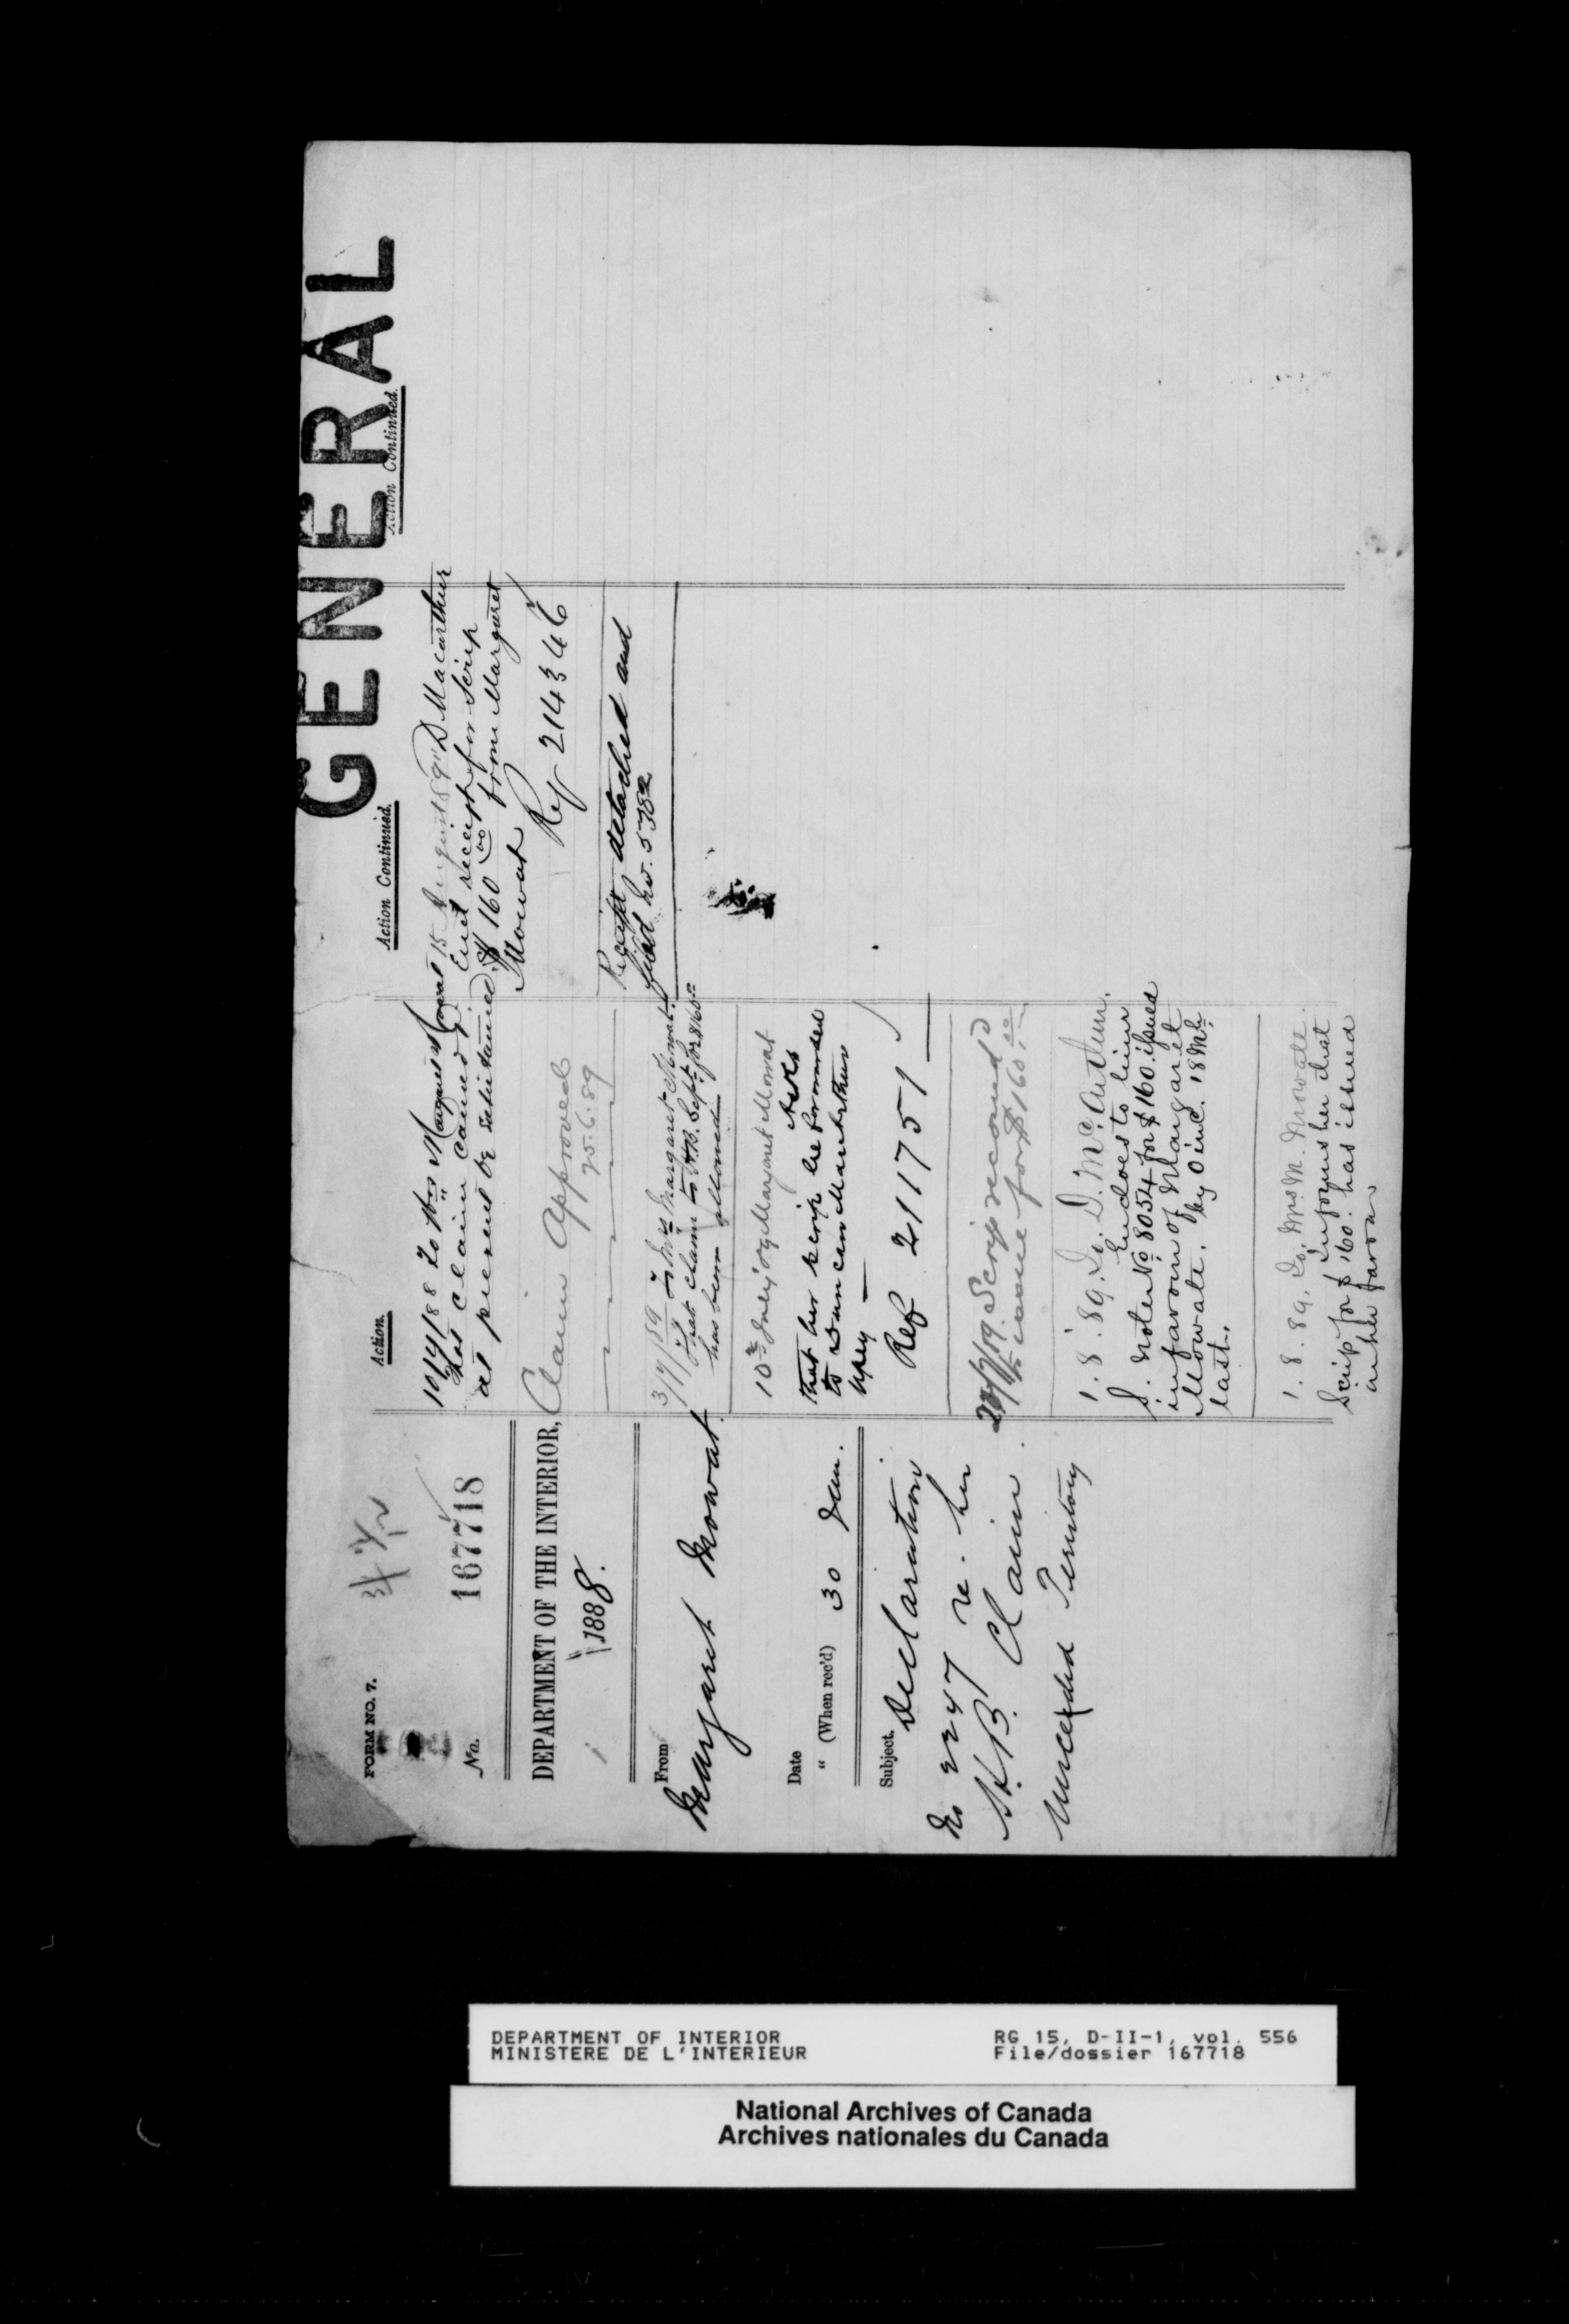 GENERAL
FORM NO. 7.
No. 167718
DEPARTMENT OF THE INTERIOR,
1888.
From
Margaret Mowat.
Date
" (When rec'd) 30 Jan.
Subject. Declaration
No 2247 re. her
H.B. Claim.
Unceded Territory
Action.
10/4/88 To Mrs Margaret Mowat
her claim cannot
at present be entertained.
Claim Approved
25.6.89
3/7/89 To Mrs Margaret Mowat.
that claim to H.B. Scrip for $160.00
has been allowed
10th July '89 Margaret Mowat
Asks
that her scrip be forwarded
to Duncan MacArthur
Wpeg
Ref 211751
Scrip recomd'd
to issue for $160.00
1.8.'89. To. D. McArthur.
Endorses to him
S. Note No 8054 for $160. issued
in favour of Margaret
Mowate. by O in C. 18 Mch
last.
1.8.89. To. Mrs M. Mowate.
informs her that
Scrip for $160. has issued
in her favour
Action Continued.
15 August 89 D Macarthur
Encl receipt for Scrip
$160.00 from Margaret
Mowat
Ref 214346
Receipt detached and
filed No. 5382
Action Continued.
DEPARTMENT OF INTERIOR
MINISTERE DE L'INTERIEUR
RG 15, D-II-1, vol. 556
File/dossier 167718
National Archives of Canada
Archives nationales du Canada